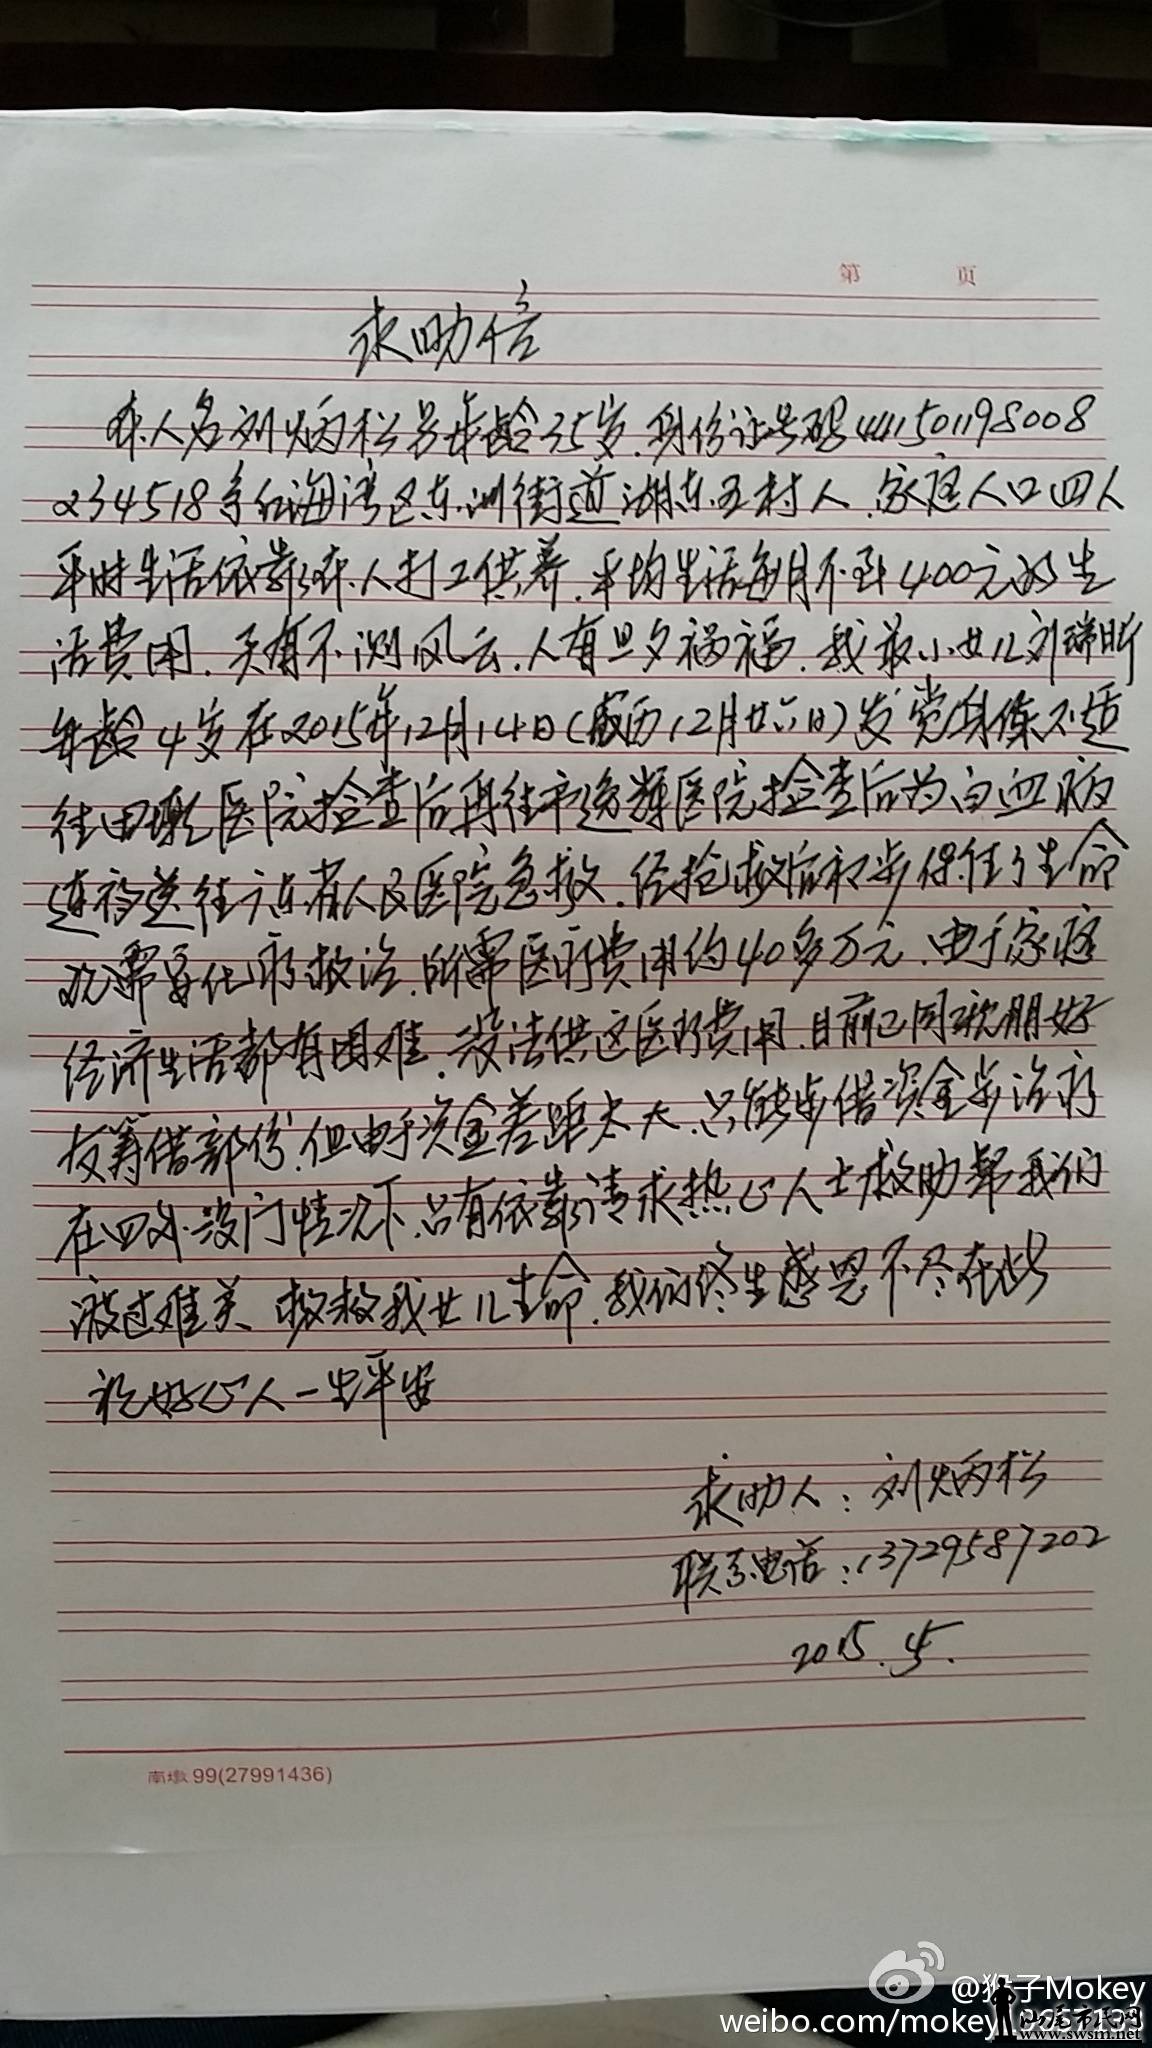 第 页
求助信
本人名刘炳松男年龄35岁.身份证号码441501198008
234518系红海湾区东洲街道湖东五村人.家庭人口四人
平时生活依靠本人打工供养.平均生活每月不到400元的生
活费用.天有不测风云.人有旦夕祸福.我最小女儿刘瑞昕
年龄4岁在2015年12月14日(农历12月廿六日)发觉身体不适
往田墘医院捡查后再往市逸挥医院捡查后为白血病
连夜送往广东省人民医院急救.经抢救后初步保住了生命
现需要化疗救治.所需医疗费用约40多万元.由于家庭
经济生活都有困难.没法供这医疗费用.目前已同亲朋好
友筹借部份.但由于资金差距太大.只能步借资金步治疗
在四处没门情况下.只有依靠请求热心人士救助帮我们
渡过难关.救救我女儿生命.我们终生感恩不尽在此
祝好心人一生平安
求助人:刘炳松
联系电话:13729587202
2015.
南墩 99(27991436)
@猴子Mokey
weibo.com/mokey
汕尾市民网
www.swsm.net